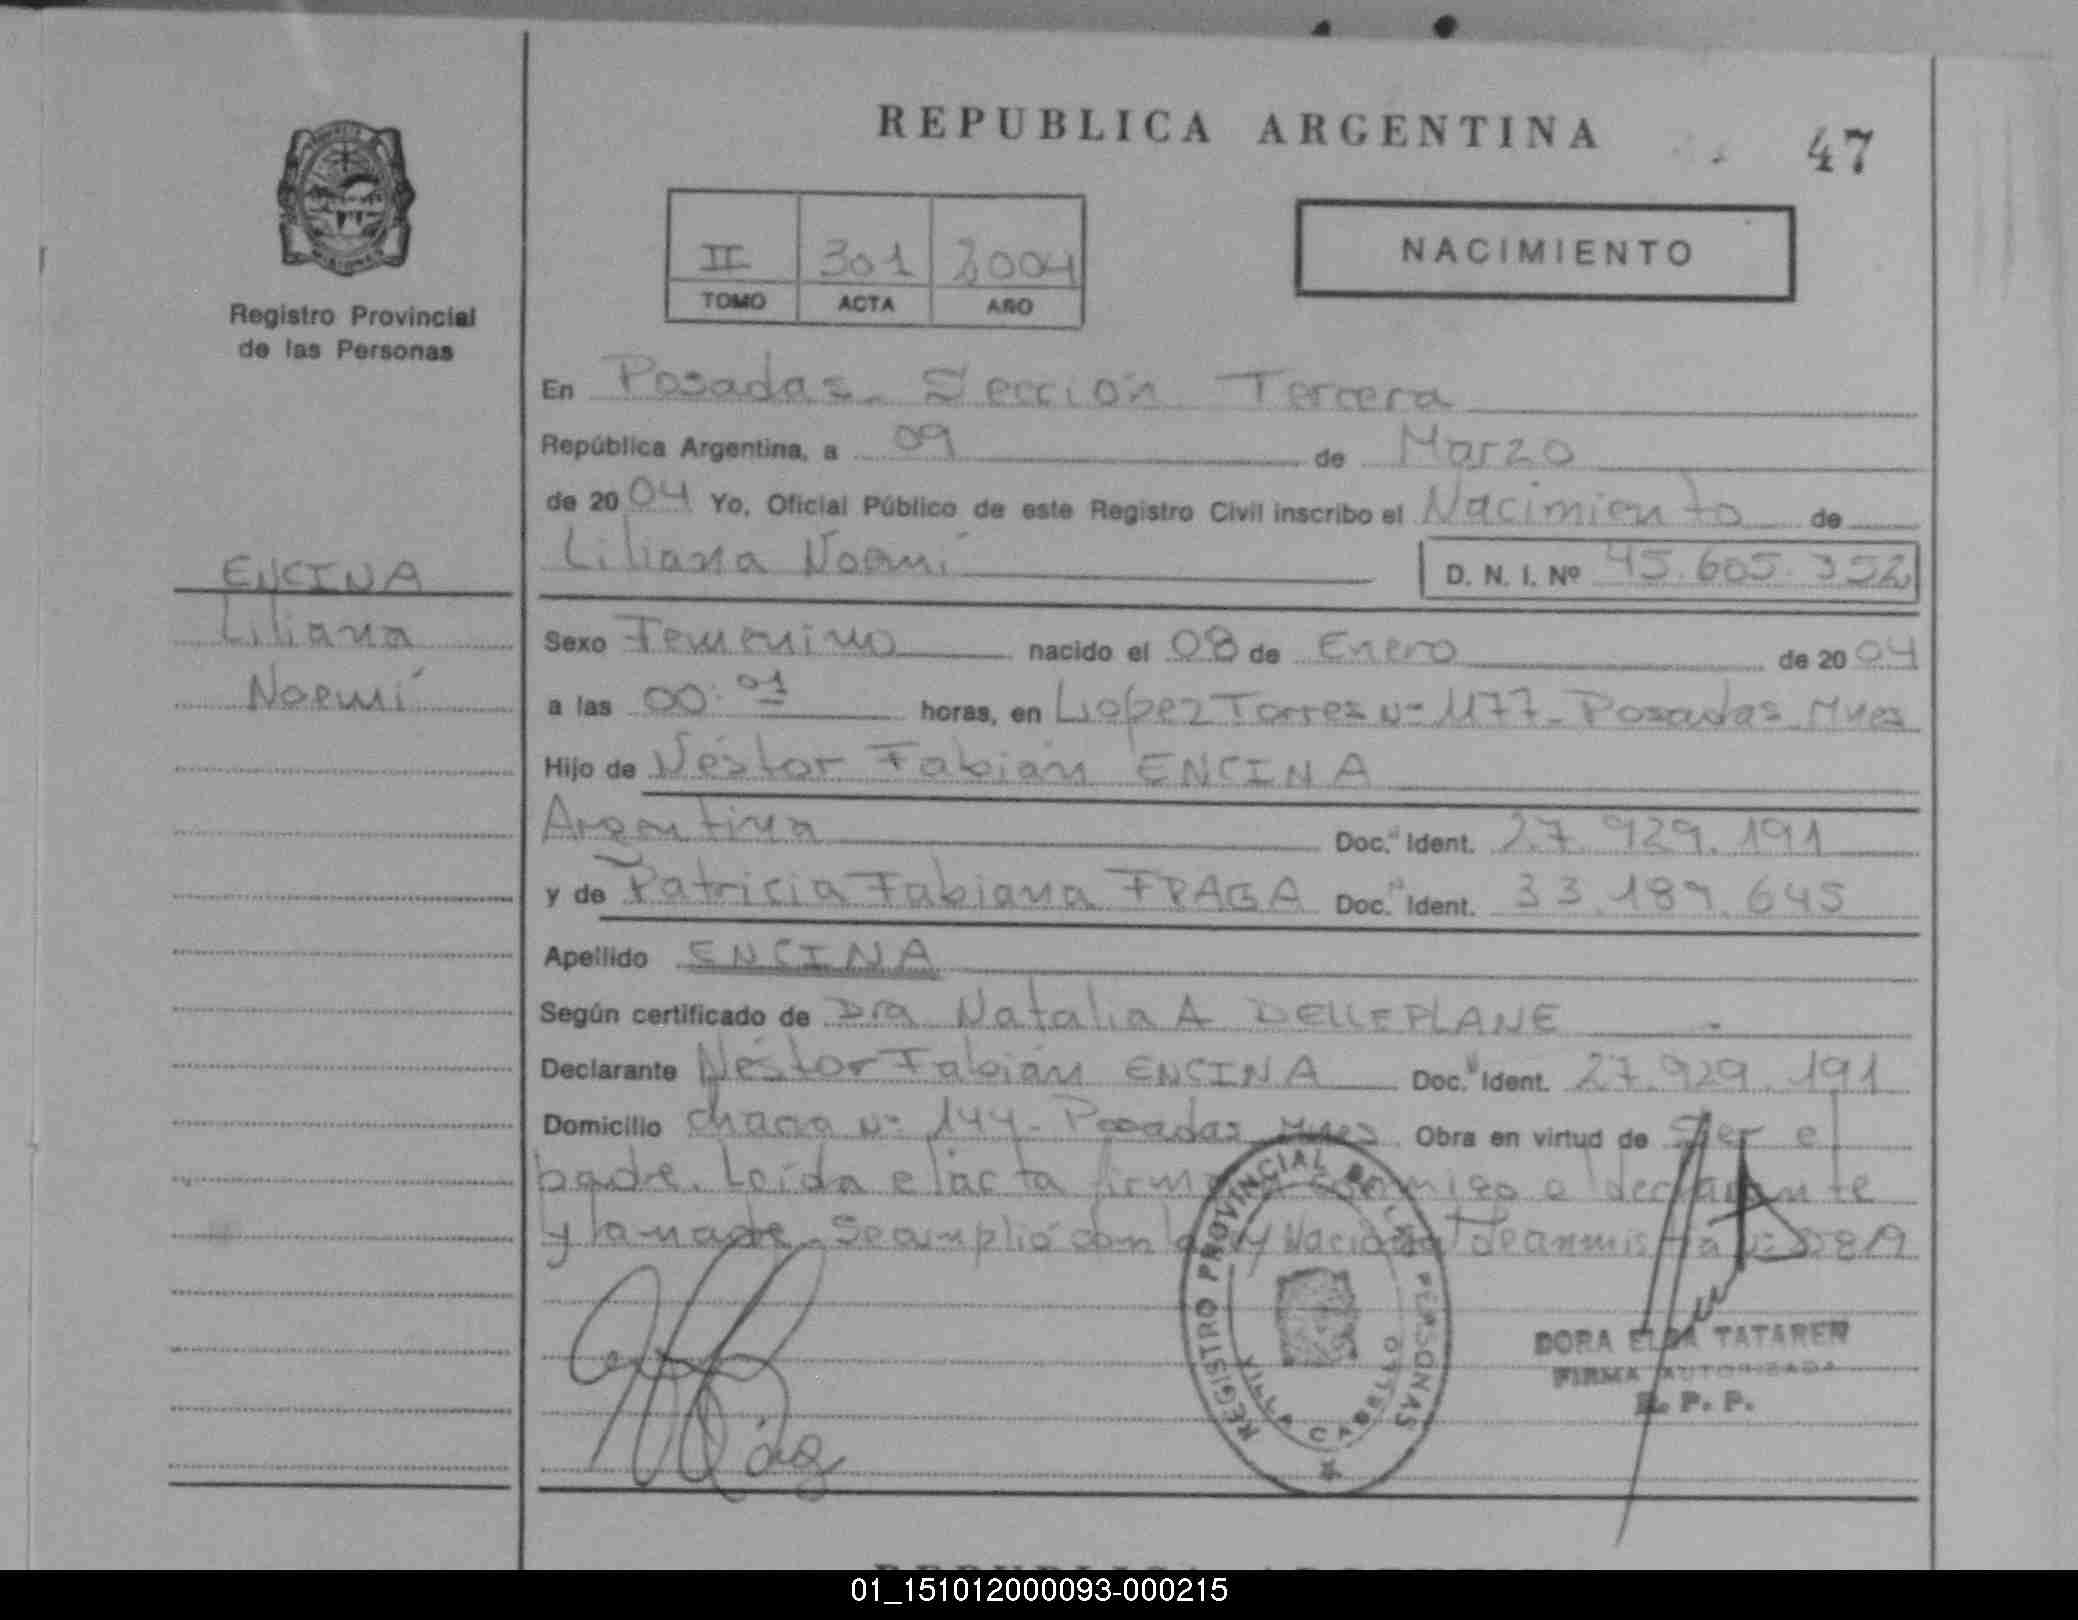 REPUBLICA ARGENTINA
47
Registro Provincial
de las Personas
II 301 2004
TOMO ACTA AÑO
NACIMIENTO
En Posadas - Sección Tercera
República Argentina, a 09 de Marzo
de 2004 Yo, Oficial Público de este Registro Civil inscribo el Nacimiento de
Liliana Noemí D. N. I. Nº 45.605.352
ENCINA
Liliana
Noemí
Sexo Femenino nacido el 08 de Enero de 2004
a las 00:01 horas, en López Torres Nº 1177 - Posadas Mnes
Hijo de Néstor Fabián ENCINA
Argentina Doc. Ident. 27.929.191
y de Patricia Fabiana FRAGA Doc. Ident. 33.189.645
Apellido ENCINA
Según certificado de Dra Natalia A DELLEPLANE
Declarante Néstor Fabián ENCINA Doc. Ident. 27.929.191
Domicilio chacra Nº 144 - Posadas Mnes Obra en virtud de Ser el
padre. Leída el acta firma conmigo el declarante
y la madre. Se cumplió con la Ley Nacional de
REGISTRO PROVINCIAL DE LAS PERSONAS
VILLA CABELLO
DORA ELBA TATAREN
FIRMA AUTORIZADA
R. P. P.
01_151012000093-000215